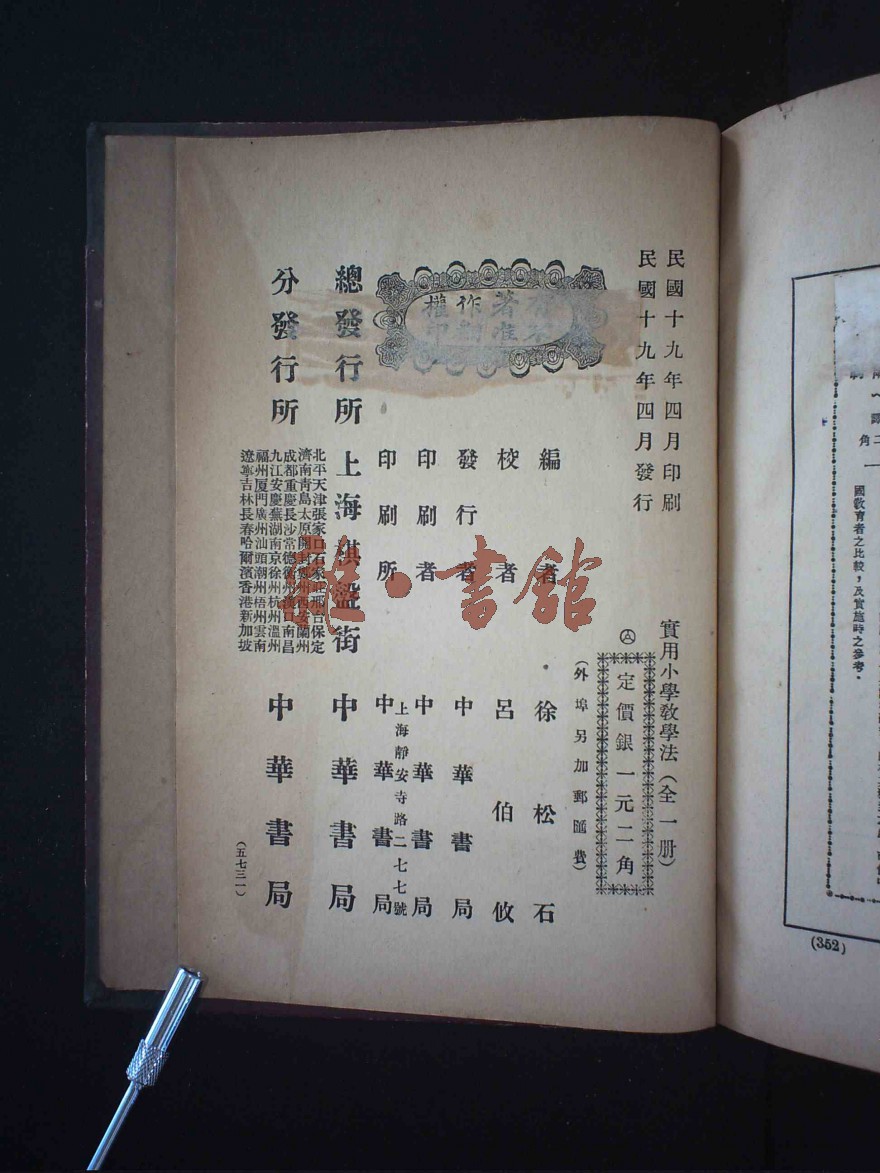 民國十九年四月印刷
民國十九年四月發行
實用小學敎學法（全一册）
定價銀一元二角
（外埠另加郵匯費）
有著作權
不准翻印
編者 徐松石
校者 呂伯攸
發行者 中華書局
印刷者 中華書局
上海靜安寺路二七七號
印刷所 中華書局
總發行所 上海棋盤街 中華書局
分發行所 中華書局
北平天津張家口石家莊邢台保定
濟南靑島太原開封鄭州西安蘭州
成都重慶長沙常德衡州漢口南昌
九江安慶蕪湖南京徐州杭州溫州
福州厦門廣州汕頭潮州梧州雲南
遼寧吉林長春哈爾濱香港新加坡
（五七三一）
國敎育者之比較，及實施時之參考。
角
(352)
雅·書館